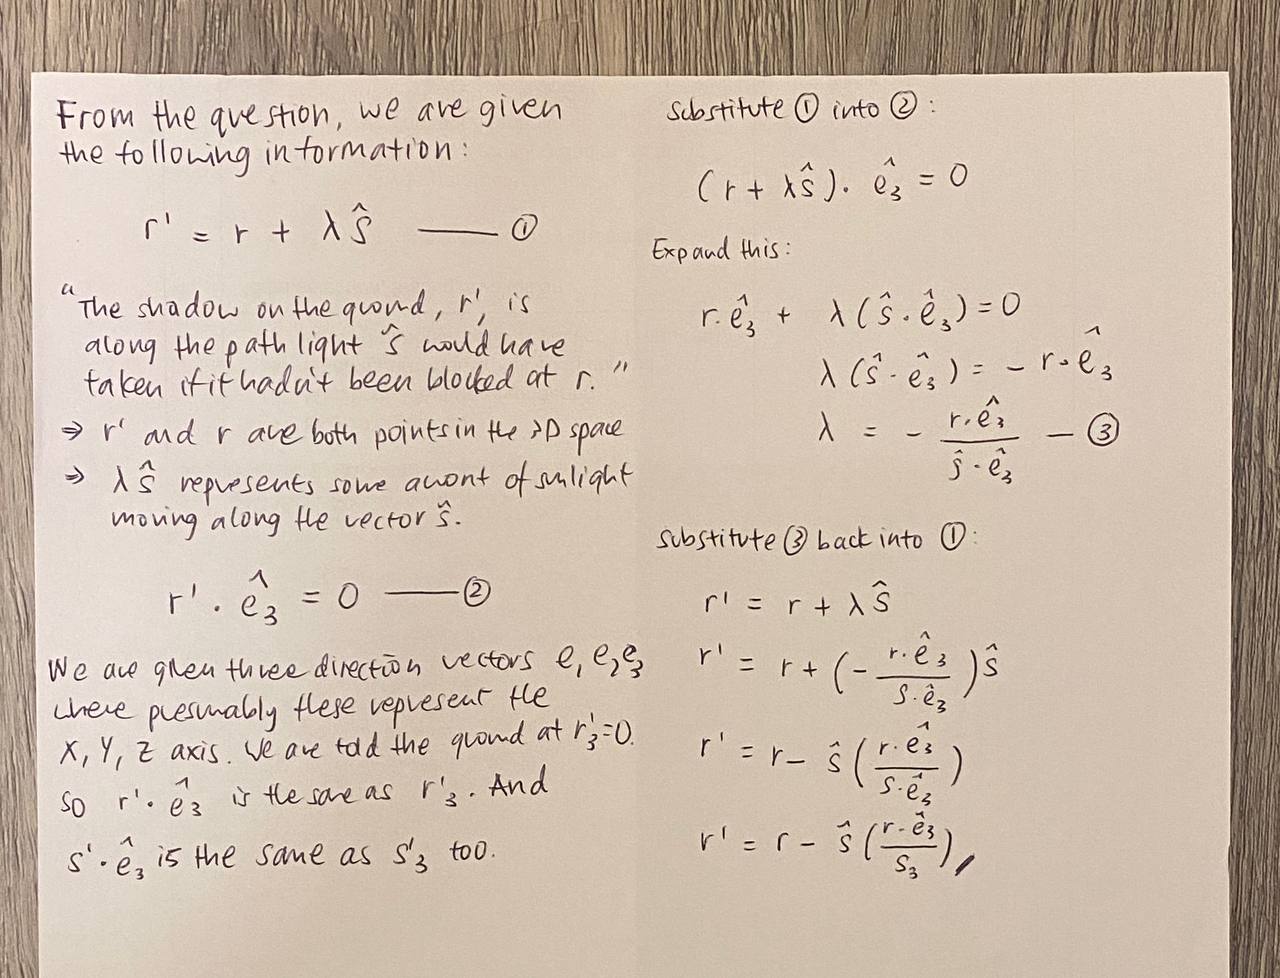 From the question, we are given
the following information:
r' = r + λŝ —— ①
"The shadow on the ground, r', is
along the path light ŝ would have
taken if it hadn't been blocked at r."
⇒ r' and r are both points in the 3D space
⇒ λŝ represents some amont of sunlight
moving along the vector ŝ.
r' · ê₃ = 0 —— ②
We are given three direction vectors e₁ e₂ e₃
where presumably these represent the
X, Y, Z axis. We are told the ground at r'₃=0.
So r' · ê₃ is the same as r'₃. And
s' · ê₃ is the same as s'₃ too.
Substitute ① into ②:
(r + λŝ) · ê₃ = 0
Expand this:
r · ê₃ + λ(ŝ · ê₃) = 0
λ(ŝ · ê₃) = - r · ê₃
λ = - (r · ê₃)/(ŝ · ê₃) — ③
Substitute ③ back into ①:
r' = r + λŝ
r' = r + (- (r · ê₃)/(s · ê₃))ŝ
r' = r - ŝ((r · ê₃)/(s · ê₃))
r' = r - ŝ((r · ê₃)/s₃)